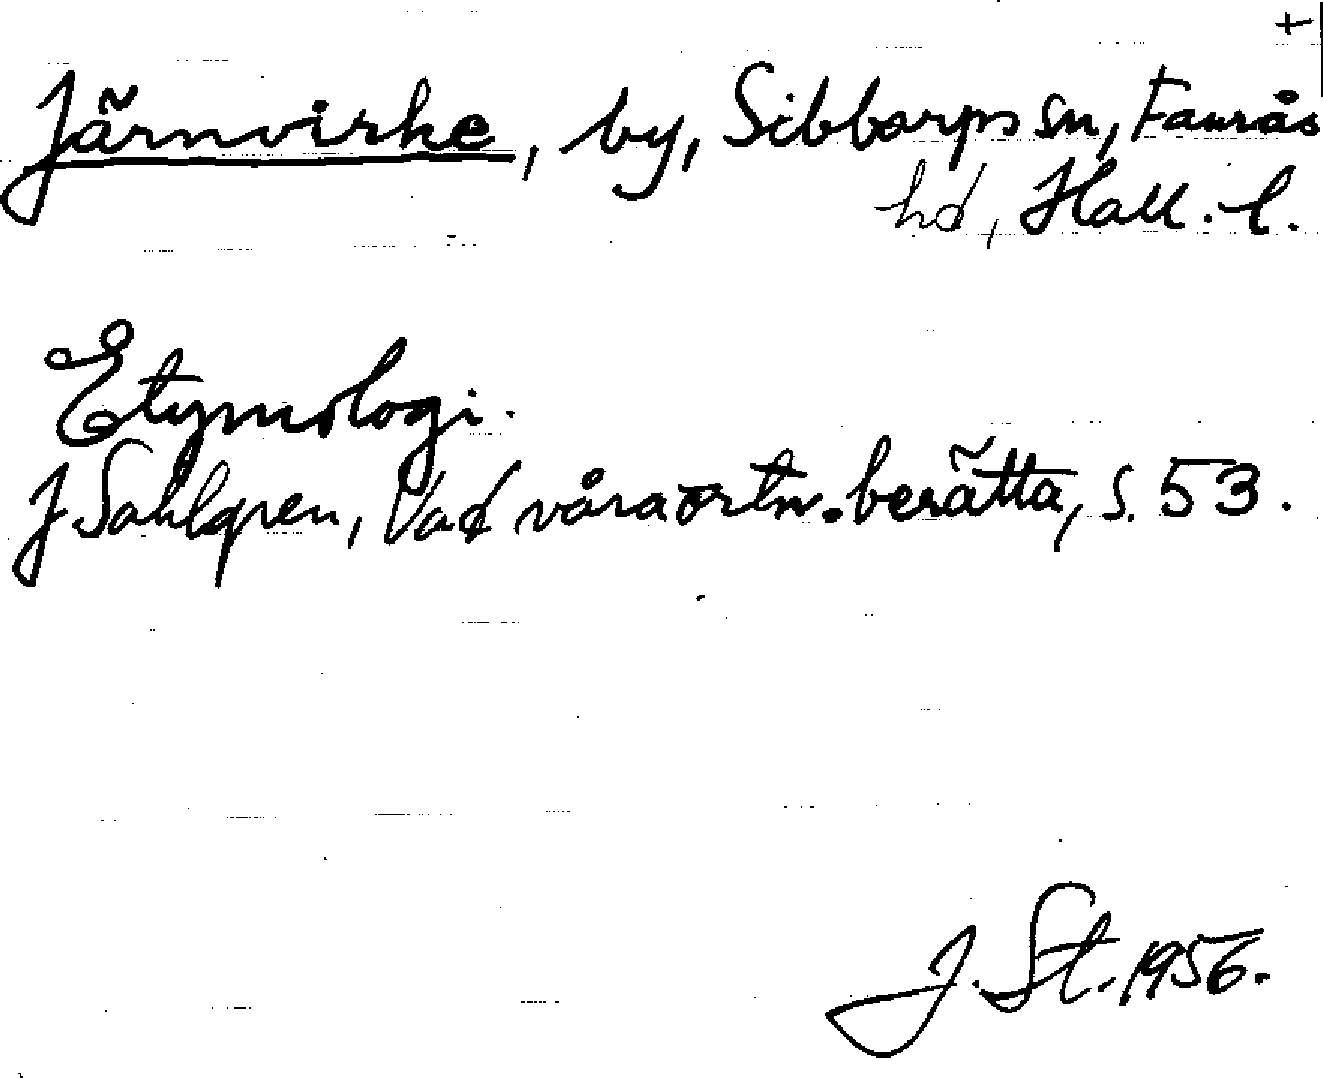 +
Järnvirke, by, Sibbarps sn, Faurås
hd, Hall. l.
Etymologi.
J. Sahlgren, Vad våra ortn. berätta, s. 53.
J. St. 1956.